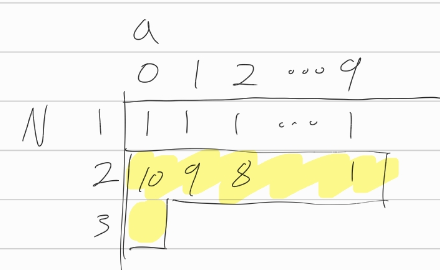 a
0 1 2 ... 9
N 1 1 1 1 ... 1
2 10 9 8 1
3